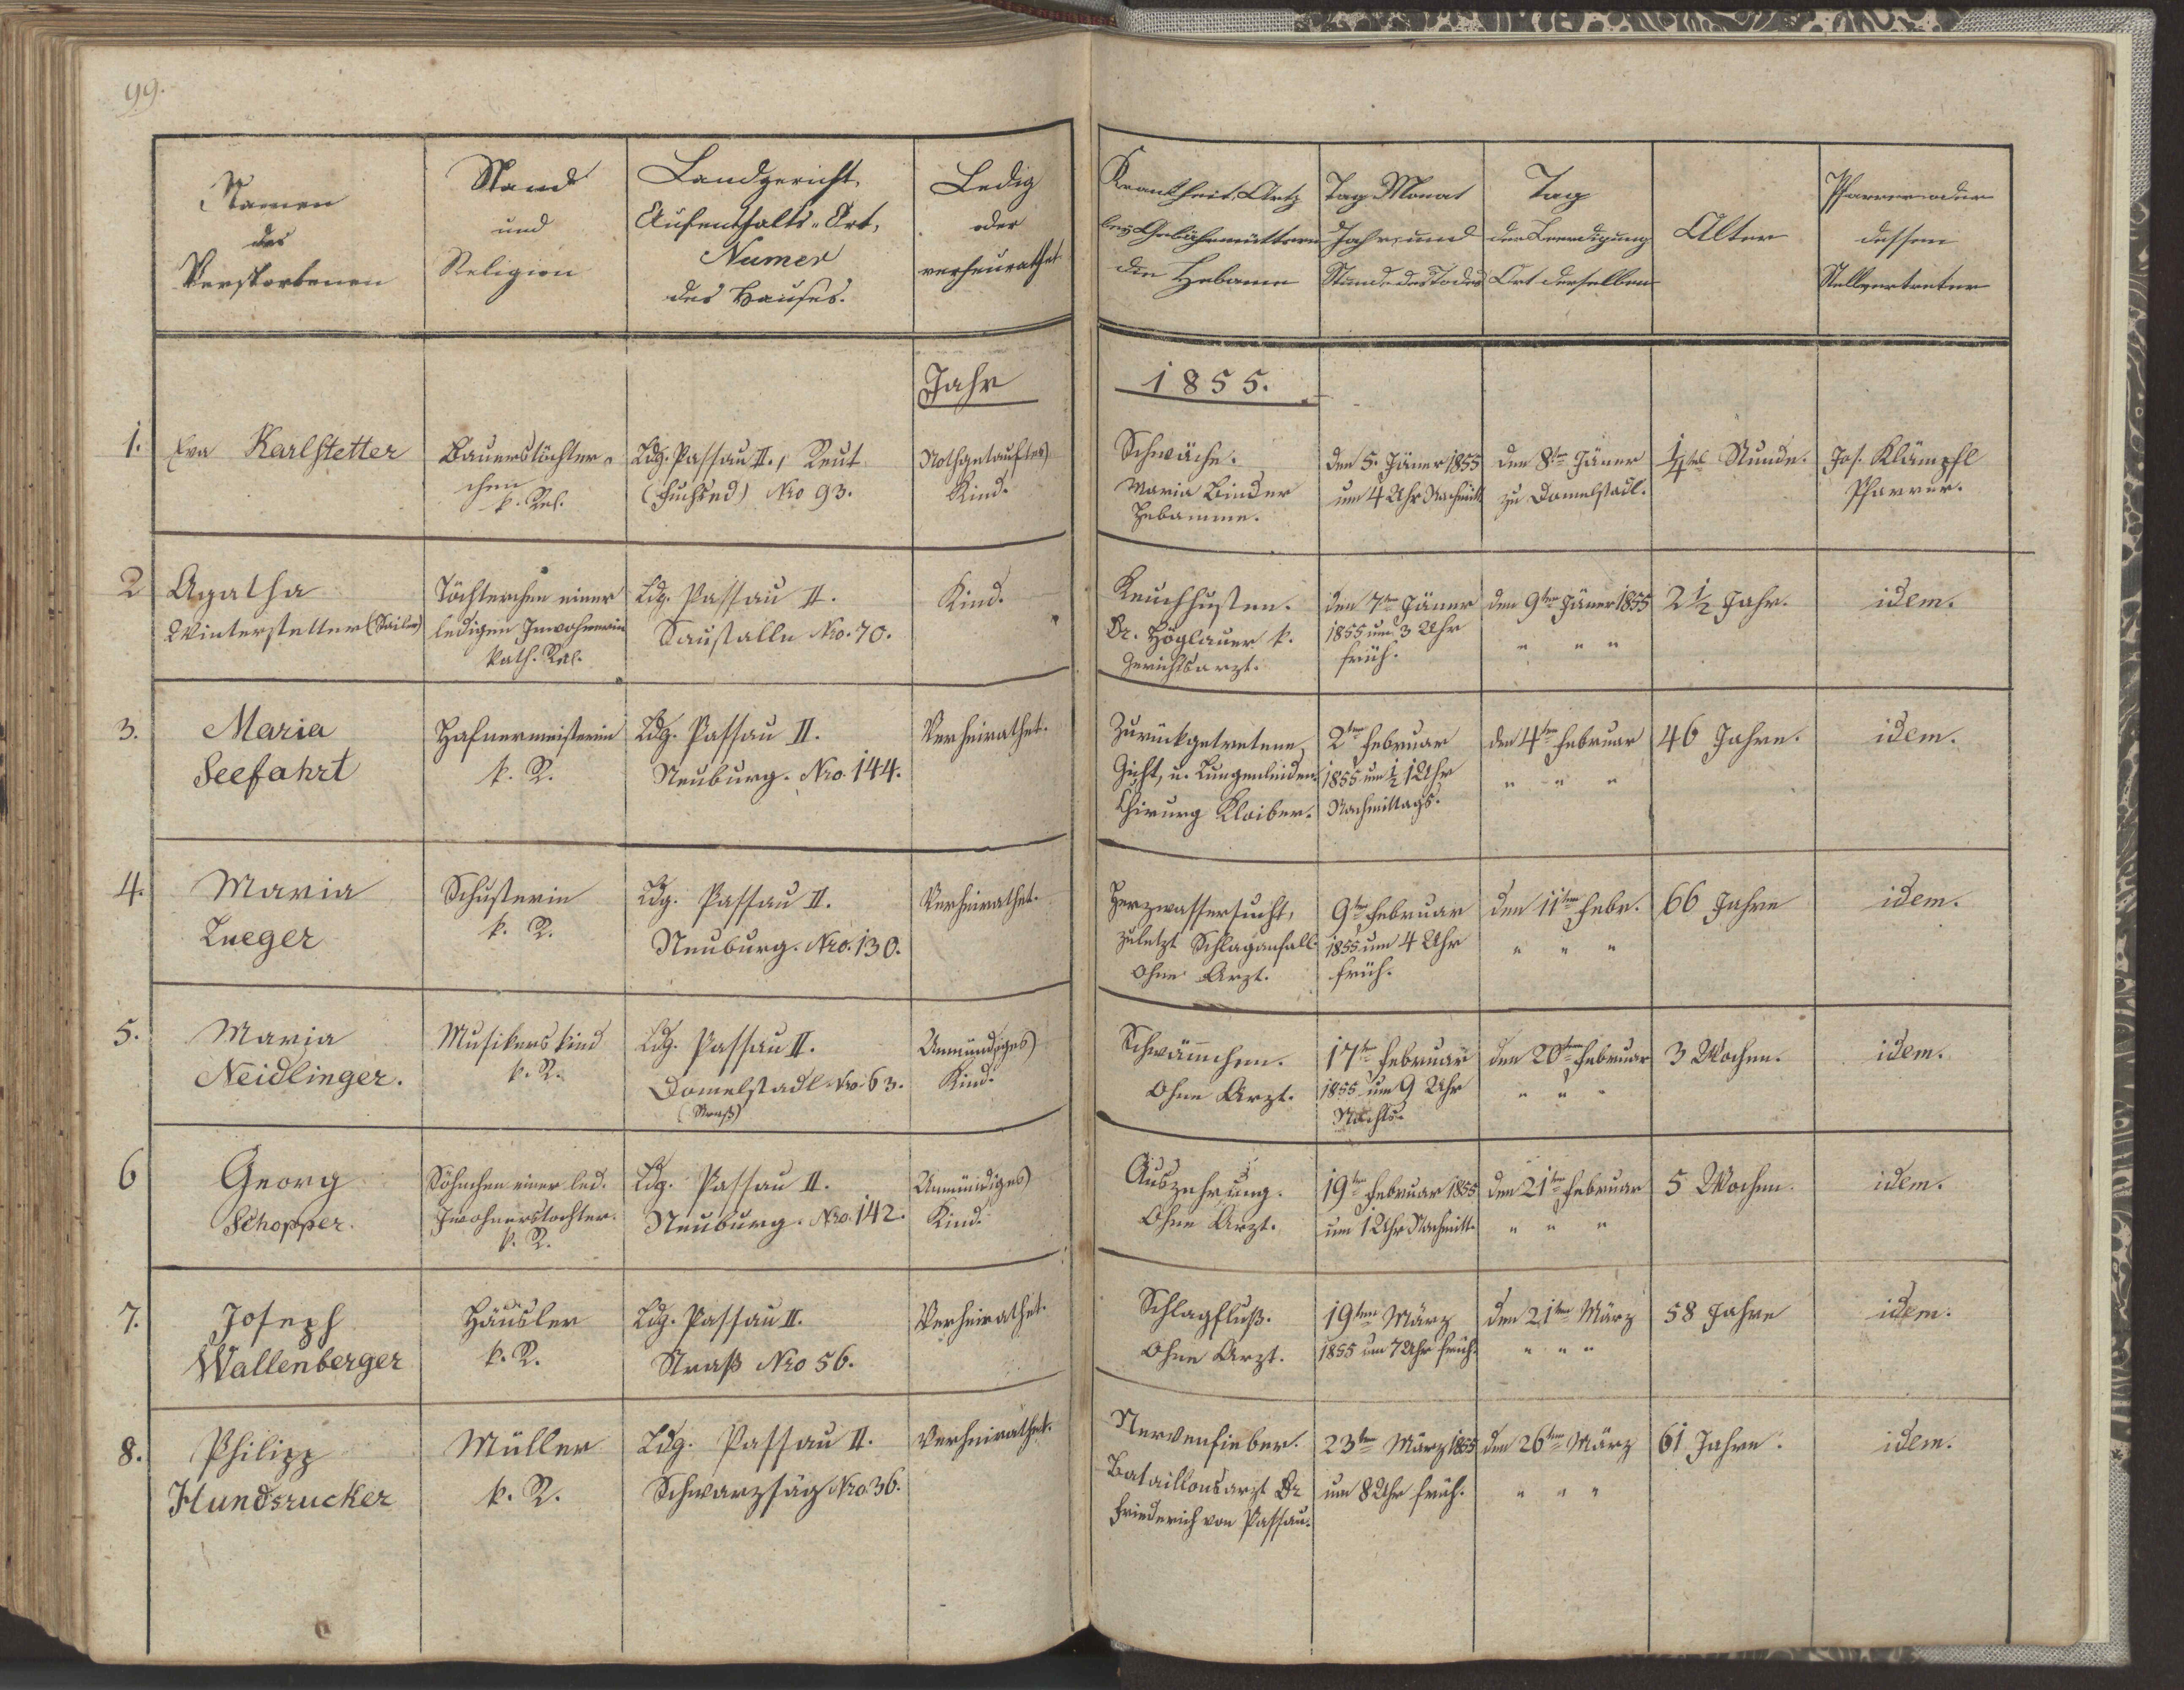 99.
Namen
des
Verstorbenen
Stand
und
Religion
Landgericht,
Aufenthalts-Ort,
Numer
des Hauses.
Ledig
oder
verheurathet
Krankheit, Artz
bey Gebährmüttern
die Hebame
Tag Monat
Jahr, und
Stunde des Todes
Tag
der Beerdigung
Ort derselben
Alter
Pfarrer oder
dessen
Stellvertreter
Jahr
1855.
1.
Eva Karlstetter
Bauerstöchter-
chen
k. Rel.
Ldg. Passau II., Reut
No 93.
Nothgetauftes
Kind.
Schwäche.
Maria Binder
Hebamme.
den 5. Jäner 1855
um 4 Uhr Nachmitt.
den 8ten Jäner
zu Domelstadl.
1/4tel Stunde.
Jos. Klämpfl
Pfarrer.
2
Agatha
Winterstetter
Töchterchen einer
ledigen Inwohnerin
kath. Rel.
Ldg. Passau II.
Saustalln No. 70.
Kind.
Keuchhusten.
Dr. Höglauer k.
Gerichtsarzt.
den 7ten Jäner
1855 um 3 Uhr
früh.
den 9ten Jäner 1855
" " "
2 1/2 Jahr.
idem.
3.
Maria
Seefahrt
Hafnermeisterin
k. R.
Ldg. Passau II.
Neuburg. No. 144.
Verheirathet.
Zurückgetretene
Gicht, u. Lungenleiden.
Chirurg Kloiber.
2ten Februar
1855 um 1/2 1 Uhr
Nachmittags.
den 4ten Februar
" " "
46 Jahre.
idem.
4.
Maria
Lueger
Schusterin
k. R.
Ldg. Passau II.
Neuburg. No. 130.
Verheirathet.
Herzwassersucht,
zuletzt Schlaganfall.
Ohne Arzt.
9ten Februar
1855 um 4 Uhr
früh.
den 11ten Febr.
" " "
66 Jahre
idem.
5.
Maria
Neidlinger.
Musikerskind
k. R.
Ldg. Passau II.
Domelstadl. No. 63.
(Straß)
Unmündiges
Kind.
Schwämchen.
Ohne Arzt.
17ten Februar
1855 um 9 Uhr
Nachts.
den 20ten Februar
" " "
3 Wochen.
idem.
6
Georg
Schopper.
Söhnchen einer led.
Inwohnerstochter.
k. R.
Ldg. Passau II.
Neuburg. No. 142.
Unmündiges
Kind.
Auszehrung.
Ohne Arzt.
19ten Februar 1855
um 1 Uhr Nachmitt.
den 21ten Februar
" " "
5 Wochen.
idem.
7.
Joseph
Wallenberger
Häusler
k. R.
Ldg. Passau II.
Straß No 56.
Verheirathet.
Schlagfluß.
Ohne Arzt.
19ten März
1855 um 7 Uhr früh.
den 21ten März
" " "
58 Jahre
idem.
8.
Philipp
Hundsrucker
Müller
k. R.
Ldg. Passau II.
Schwarzsäg No. 36.
Verheirathet.
Nervenfieber.
Bataillonsarzt Dr
Friederich von Passau.
23ten März 1855
um 8 Uhr früh.
den 26ten März
" " "
61 Jahre.
idem.